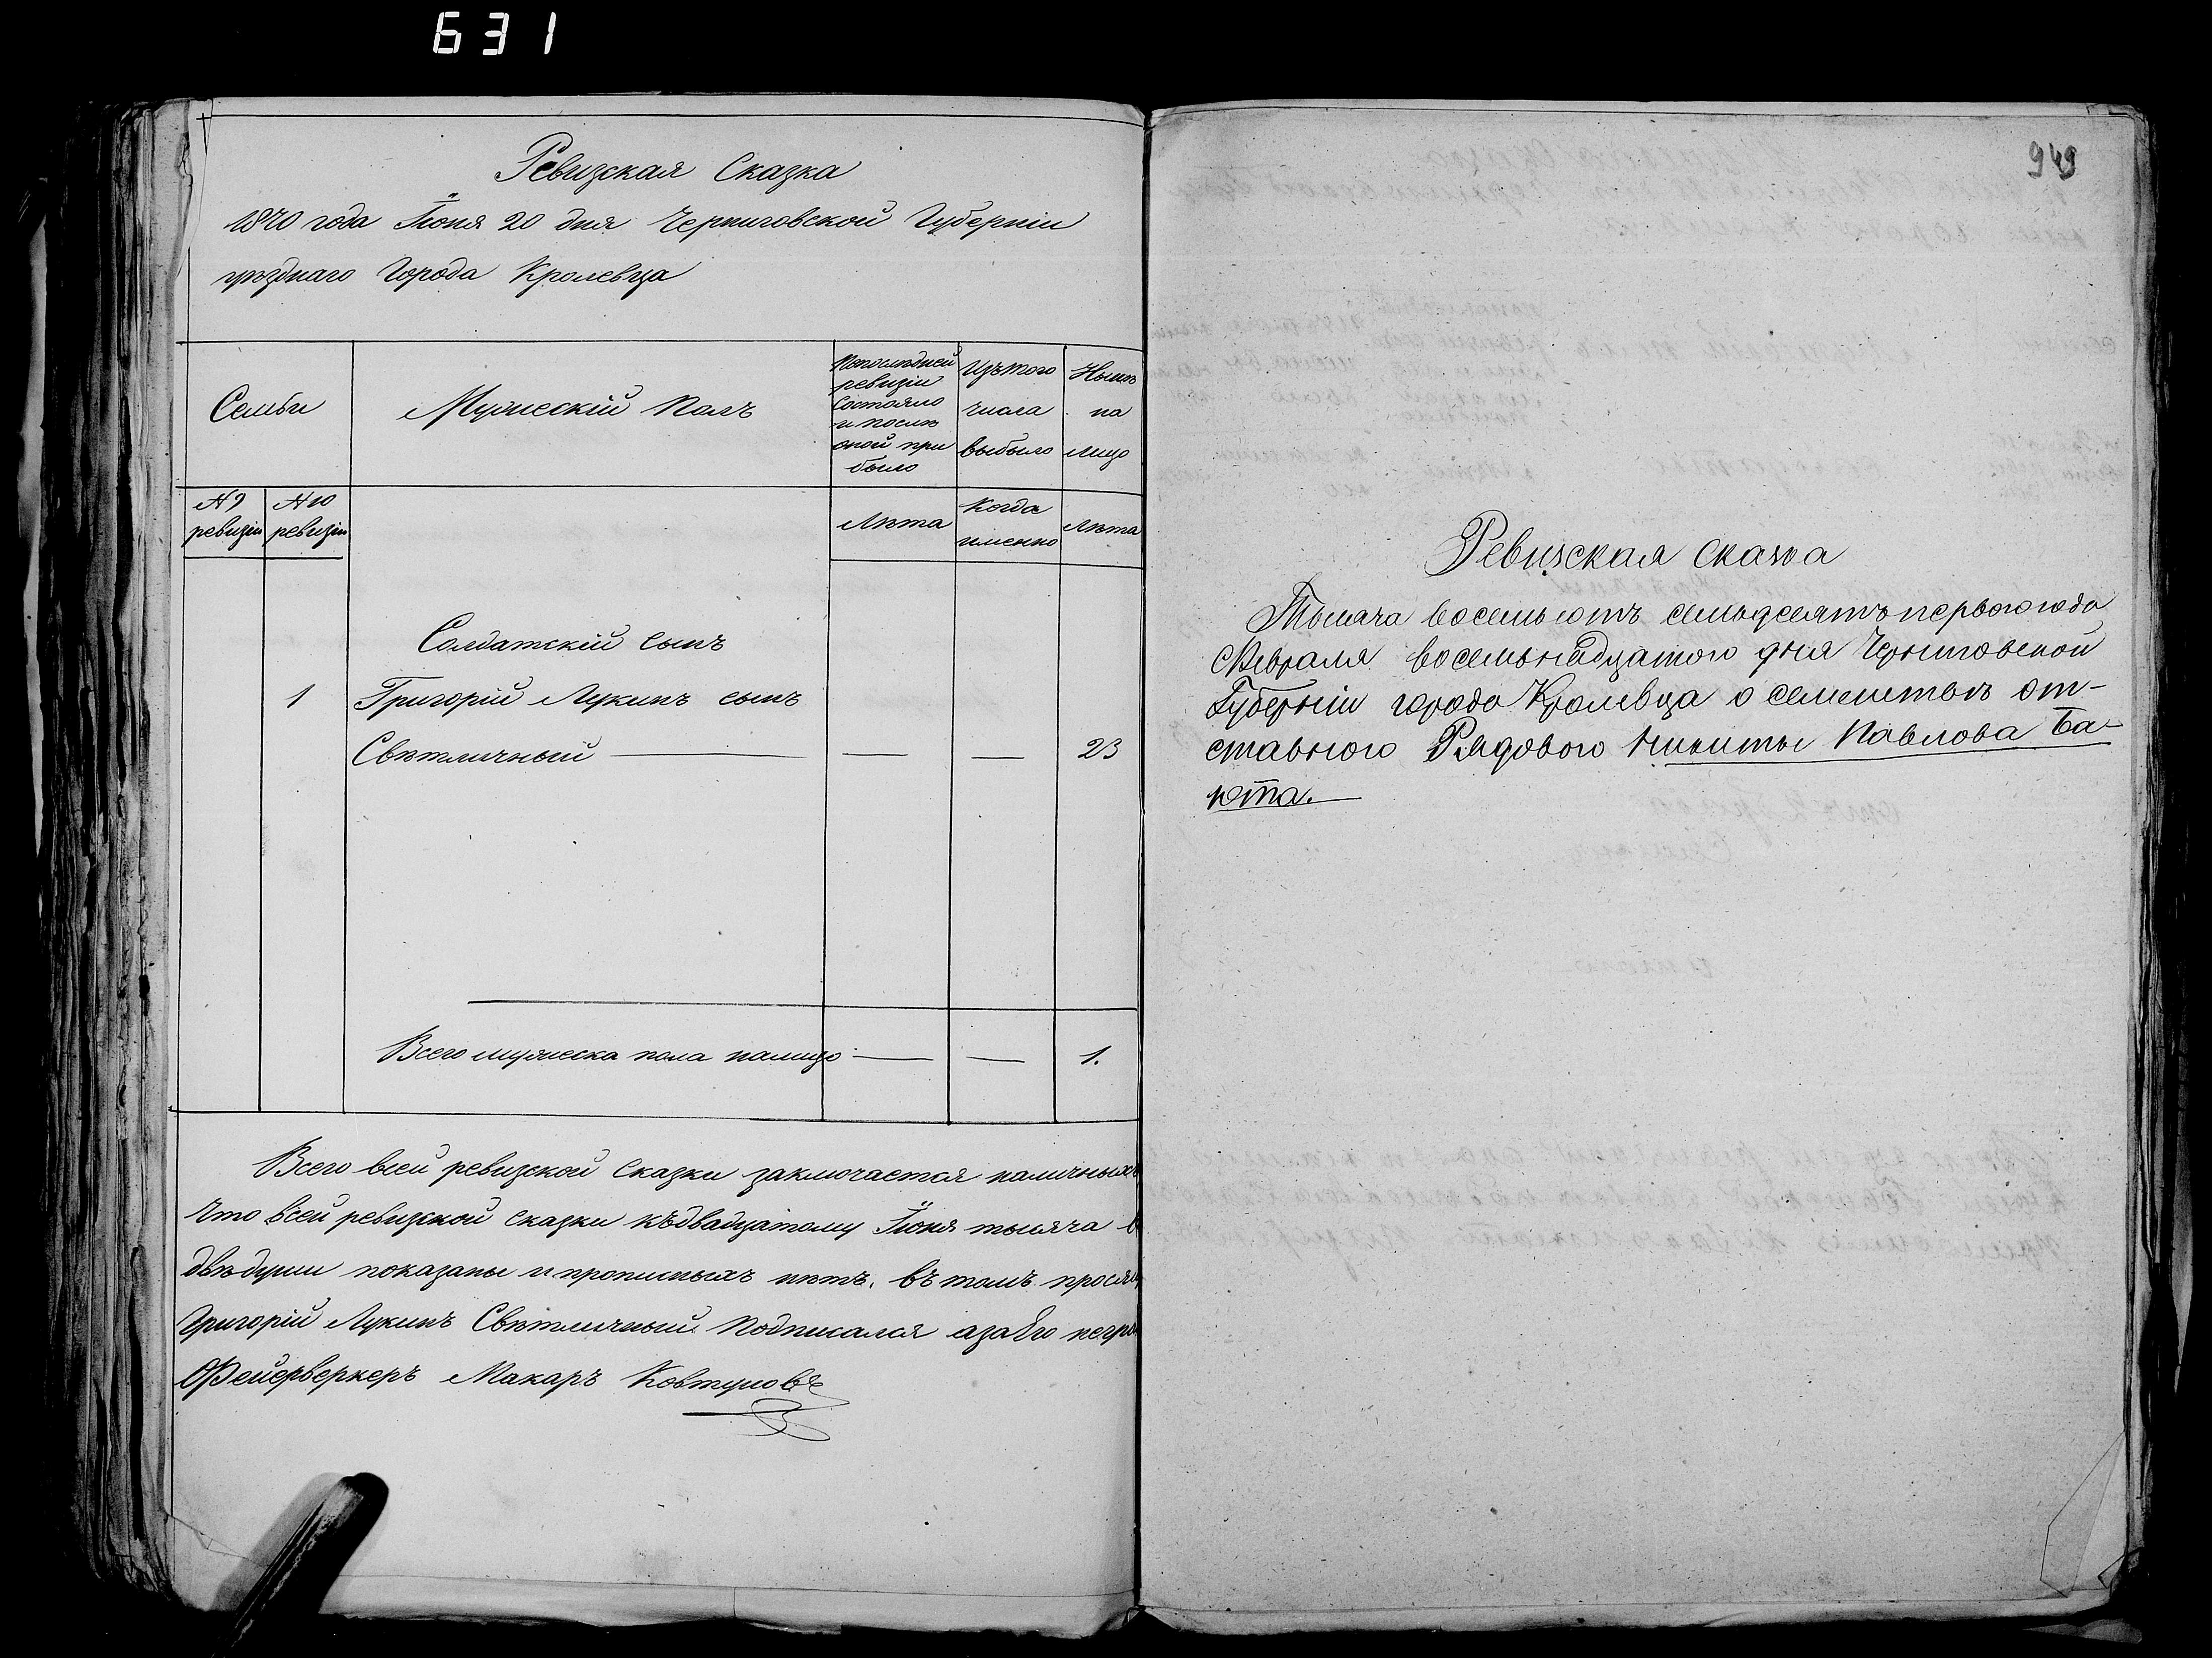 631
Ревизская Сказка
1870 года Іюня 20 дня Черниговской Губерніи
уѣзднаго Города Кролевца
Семьи
Мужескій Полъ
По последней
ревизіи
Состояло
и послѣ
оной при
было
Изъ того
числа
выбыло
Нынѣ
на
лицо
№ 9
ревизіи
№ 10
ревизіи
Лѣта
Когда
именно
Лѣта
Солдатскій сынъ
1 Григорій Лукинъ сынъ
Свѣтличный — — — 23
Всего мужеска пола налицо — — 1.
Всего всей ревизской Сказки заключается наличныхъ
Что всей ревизской сказки къ двадцатому Іюня тысяча
двѣ души показаны и прописныхъ нѣтъ, въ томъ
Григорій Лукинъ Свѣтличный Подписался а за Его
Фейерверкеръ Макаръ Ковтуновъ
949
Ревизская Сказка
Тысяча восемьсотъ семьдесятъ первого года
Февраля восемьнадцатого дня Черниговской
Губерніи города Кролевца о семействѣ От-
ставного Рядового Никиты Павлова Ба-
юта.